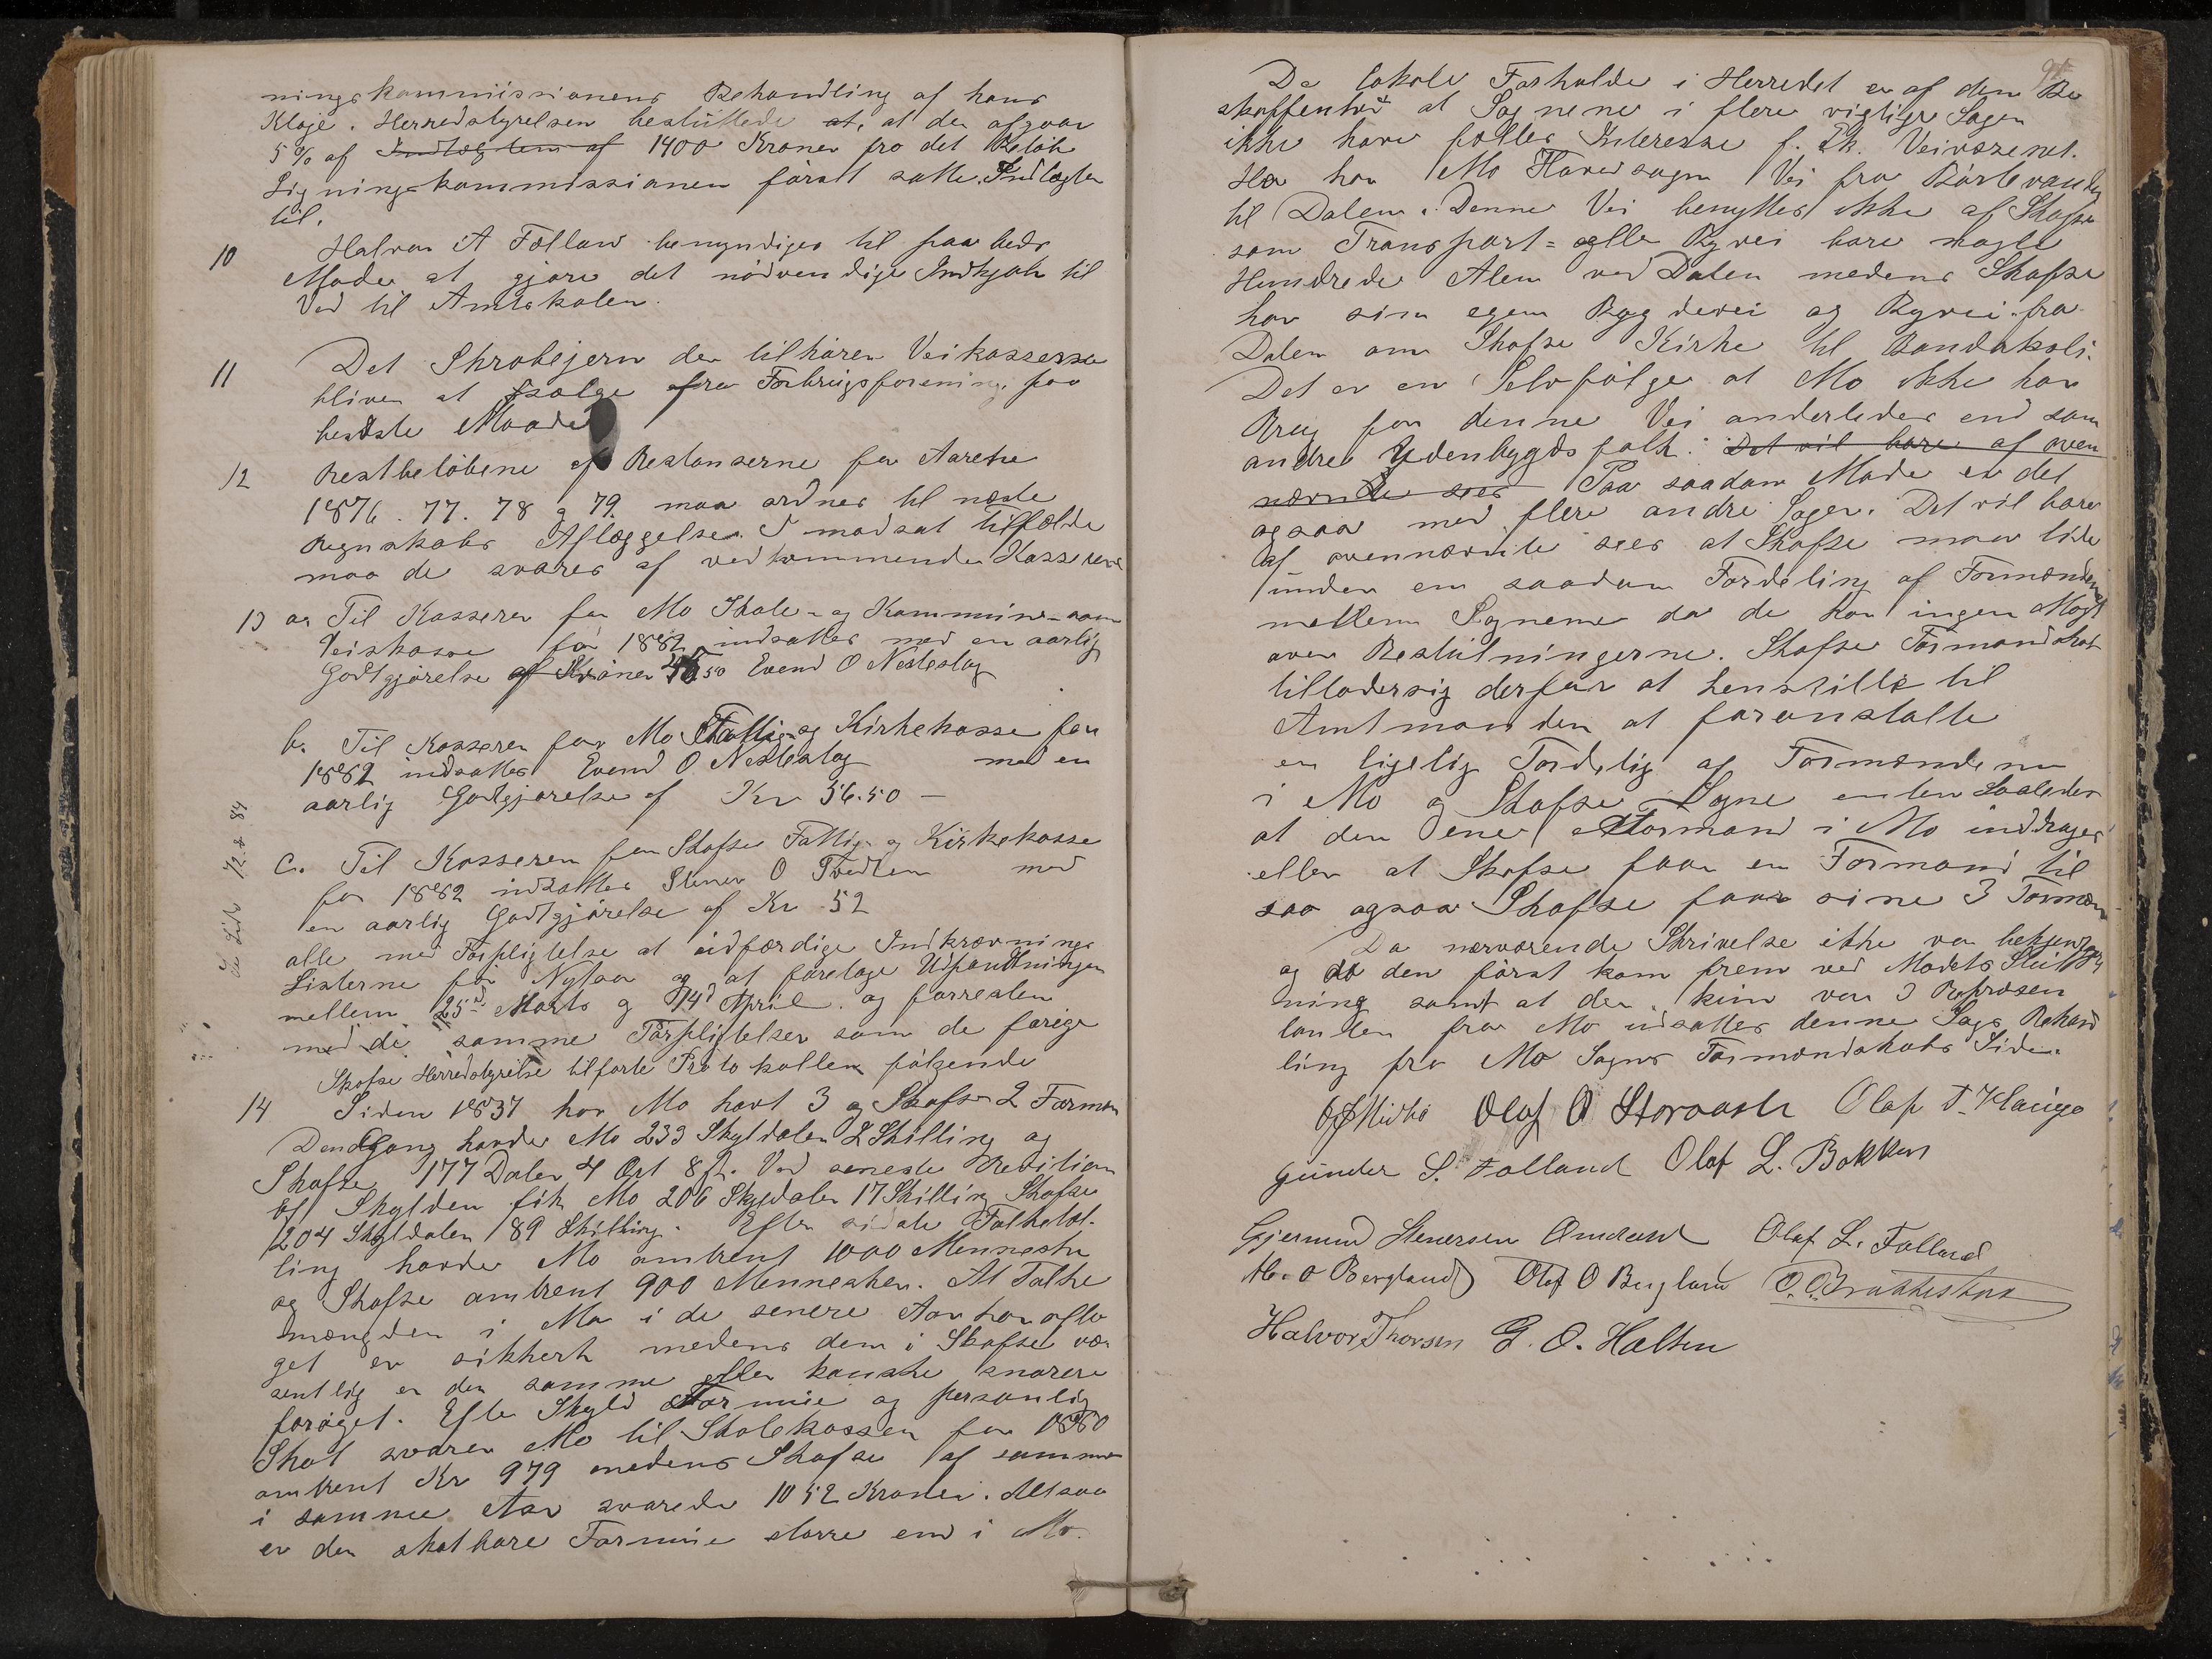 ningskommissionens Behandling af hans
Klage. Herredstyrelsen besluttede at, at der afgaar
5% af Indtægtern af 1400 Kroner fra det Beløb
Ligningskommissionen først satte Indtægten
til.
10 Halvor A Følland bemyndiges til paa bedste
Maade at gjøre det nødvendige Indkjøb til
Ved til Amtskolen.
11 Det Skrabejern der tilhører Veikasserne
bliver at sælge fra Forbrugsforening. paa
bedste Maade
12 Restbeløbene af Restanserne for Aarene
1876. 77. 78 og 79. maa ordnes til næste
Regnskabs Aflæggelse. I modsat Tilfælde
maa de svares af vedkommende Kasserere
13 a. Til Kasserer for Mo Skole- og Kommune- som
Veiskasse for 1882 indsattes med en aarlig
Godtgjørelse af Kroner 50 Evend O Nesteslog
b. Til Kasserer for Mo Fattig- og Kirkekasse for
1882 indsattes Evend O Nesteslog med en
aarlig Godtgjørelse af Kr 56.50 —
c. Til Kasserer for Skafse Fattig- og Kirkekasse
for 1882 indsattes Stener O Tvedten med
en aarlig Godtgjørelse af Kr 52
alle med Forpligtelse at udfærdige Indkrævnings
Listerne før Nytaar og at foretage Udpantningen
mellem 25d Marts og 14d April. og forresten
med de samme Forpligtelser som de forige
Skafse Herredstyrelse tilførte Protokollen følgende
14 Siden 1837 har Mo havt 3 og Skafse 2 Formæn
Dengang havde Mo 233 Skyldaler 2 Skilling og
Skafse 177 Daler 4 Ort 8 s. Ved seneste Revition
af Skylden fik Mo 206 Skyldaler 17 Skilling Skafse
204 Skyldaler 89 Skilling. Efter sidste Folketæl-
ling havde Mo omtrent 1000 Mennesker
og Skafse omtrent 900 Mennesker. At Folke
mængden i Mo i de senere Aar har afta
get er sikkert medens dem i Skafse væ
sentlig er den samme eller kanske snarere
forøget. Efter Skyld Formue og personlig
Skat svarer Mo til Skolekassen for 1880
omtrent Kr 979 medens Skafse af samme
i samme Aar svarede 1052 Kroner. Altsaa
er den skatbare Formue større end i Mo.
De lokale Forholde i Herredet er af den Be
skaffenhed at Sognene i flere vigtige Sager
ikke have fælles Interesse f. Ek. Veivæsenet.
Her har Mo Hovedsogn Vei fra Børtevandet
til Dalen. Denne Vei benyttes ikke af Skafse
som Transport- eller Byvei bare nogle
Hundrede Alen ved Dalen medens Skafse
har sin egen Bygdevei og Byvei fra
Dalen om Skafse Kirke til Bandaksli.
Det er en Selvfølge at Mo ikke har
Brug for denne Vei anderledes end som
andre Udenbygdsfolk. Det vil bare af oven
nævnte sees Paa saadan Maade er det
ogsaa med flere andre Sager. Det vil bare
af ovennævnte sees at Skafse maa lide
under en saadan Fordeling af Formændene
mellem Sognene da de har ingen Magt
over Beslutningerne. Skafse Formandskab
tillader sig derfor at henstille til
Amtmanden at foranstalte
en ligelig Fordelig af Formændene
i Mo og Skafse Sogne enten Saaledes
at den ene Formand i Mo inddrages
eller at Skafse faar en Formand til
saa ogsaa Skafse faar sine 3 Formæn
Da nærværende Skrivelse ikke var bekjendt
og da den først kom frem ved Mødets Slut
ning samt at der kun var 3 Repræsen
tanter fra Mo udsattes denne Sags Behand
ling fra Mo Sogns Formandskabs Side.
Olaf O Storaasli Olaf T. Haugo
Gunder S. Folland Olaf L. Bakken
Gjermund Stenersen Omdal Olaf L. Folland
H. O Bergland Olaf O Bergland
Halvor Thorsen G. O. Halten